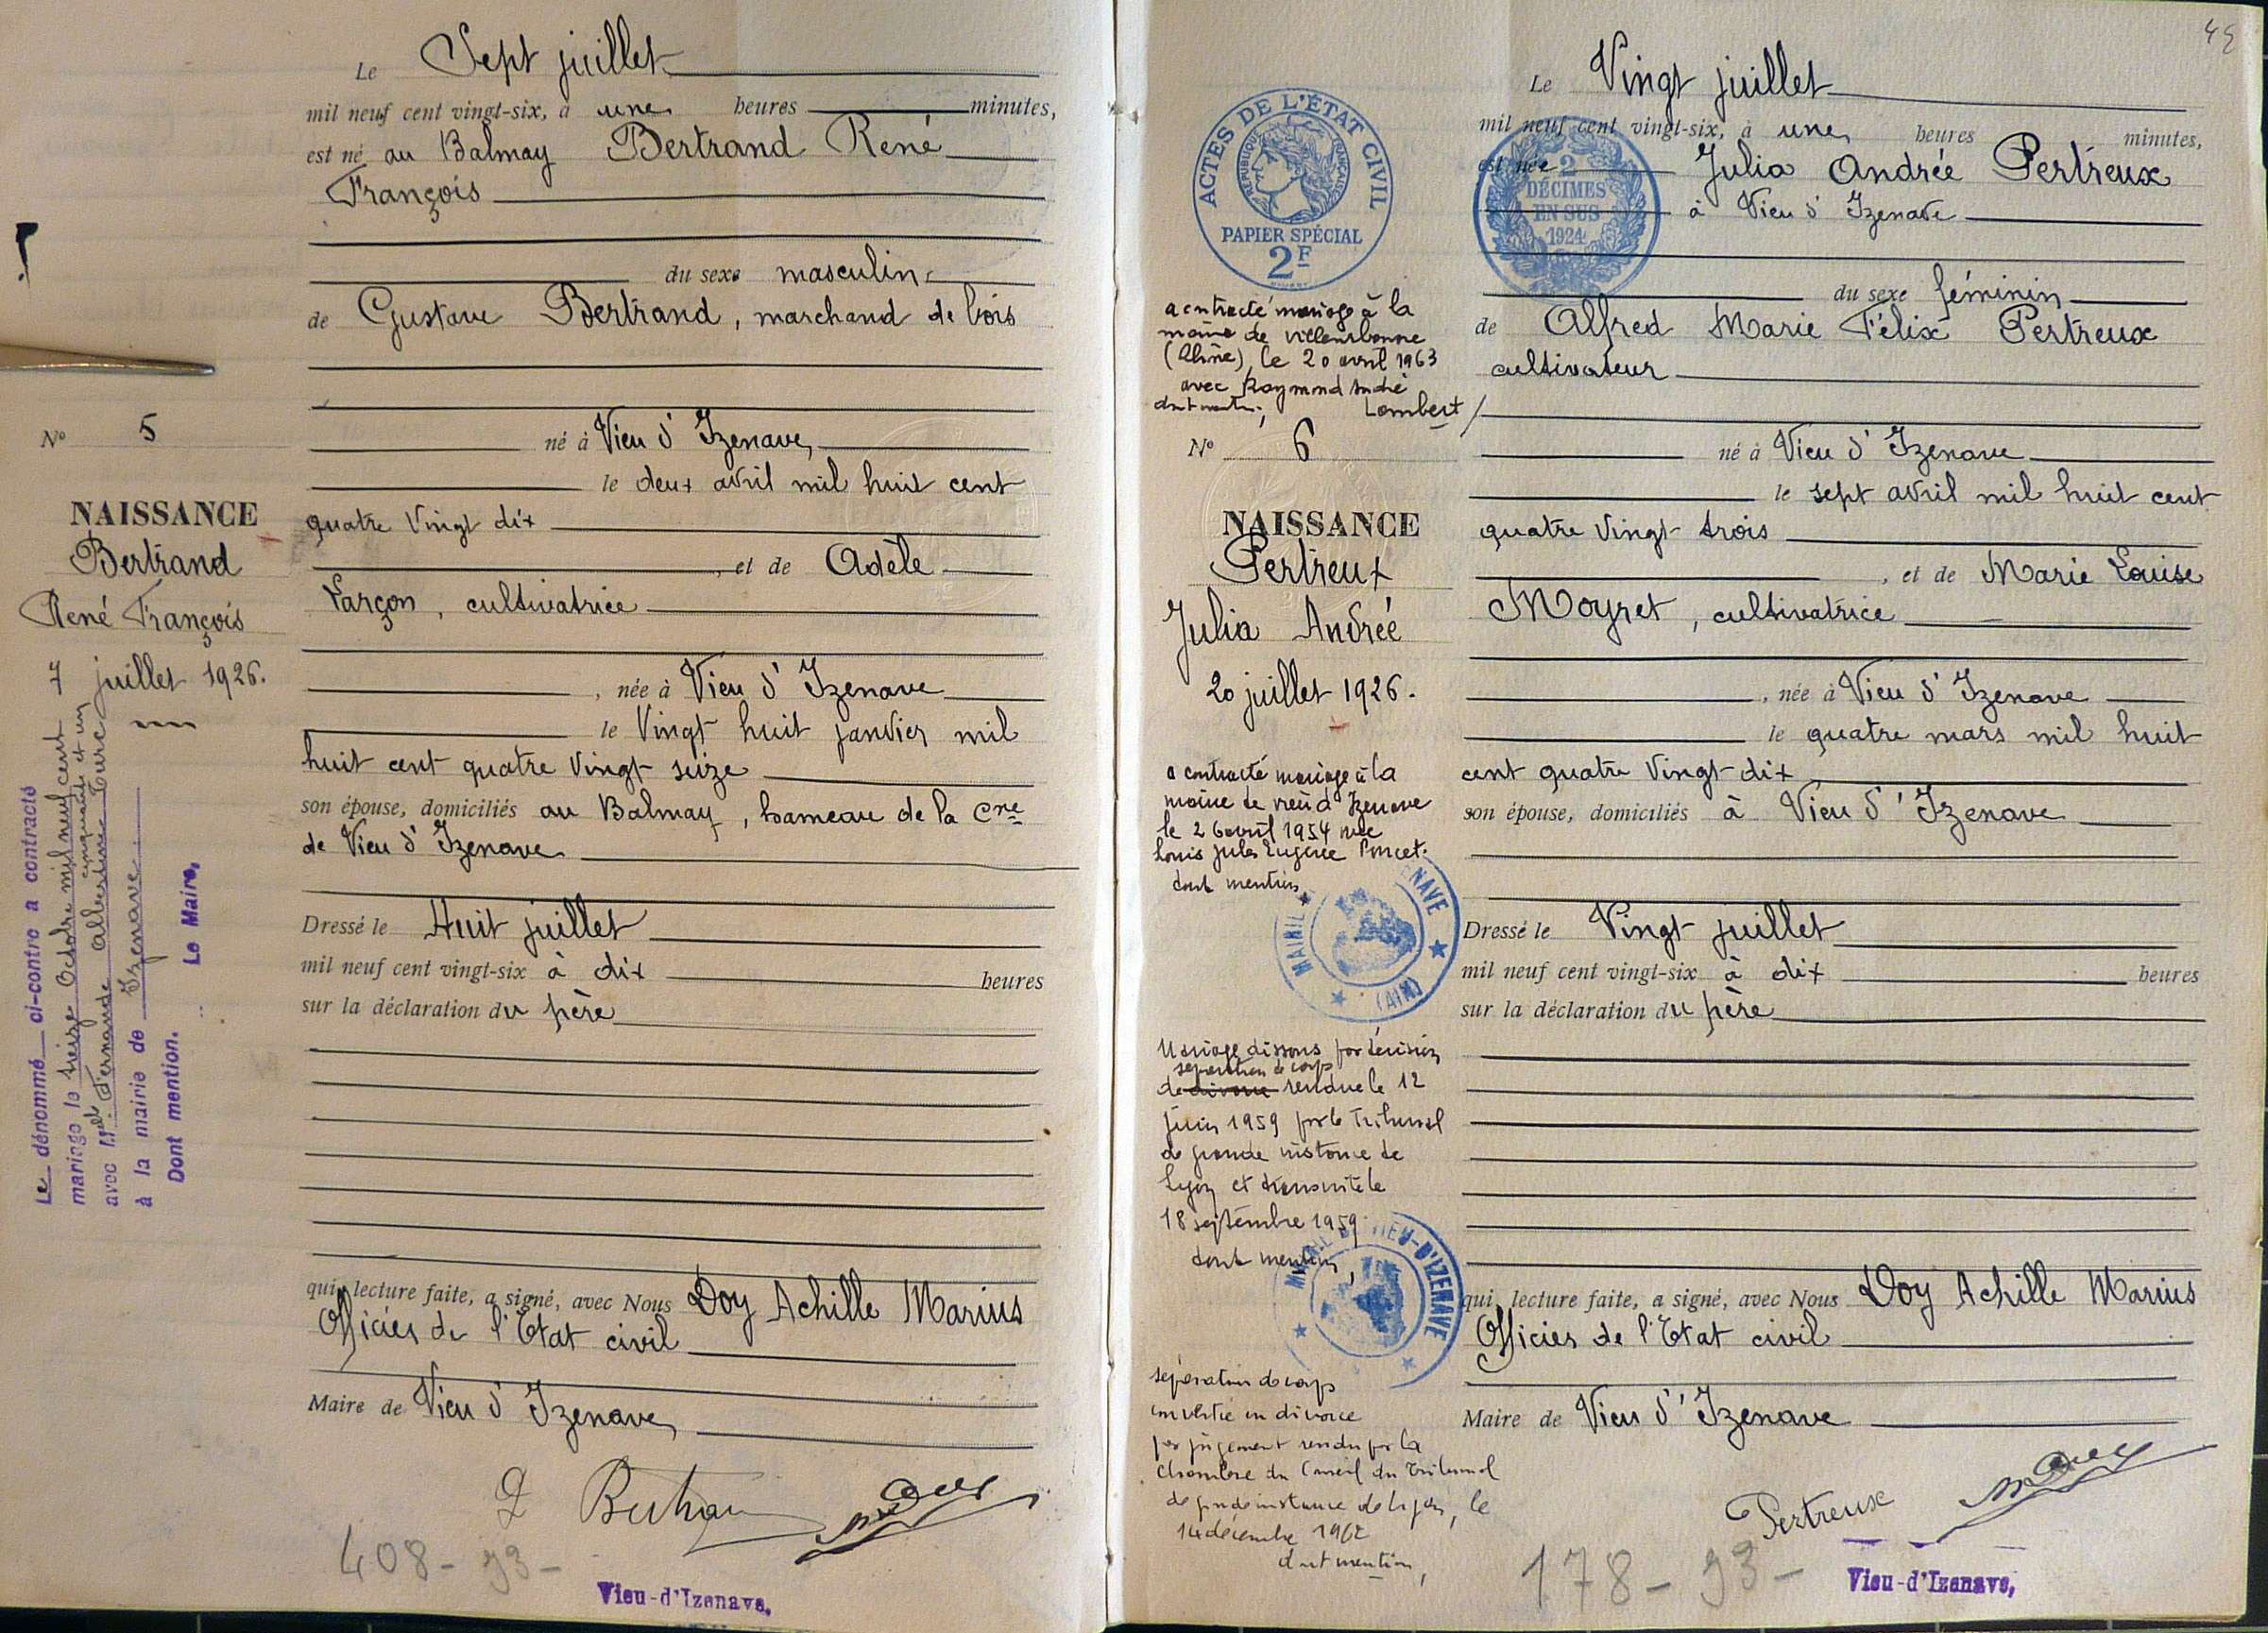 Le Sept juillet
mil neuf cent vingt-six, à une heures minutes,
est né au Balmay Bertrand René
François
du sexe masculin
de Gustave Bertrand, marchand de bois
né à Vieu d'Izenave
le deux avril mil huit cent
quatre vingt dix
, et de Adèle
Larçon, cultivatrice
, née à Vieu d'Izenave
le Vingt huit janvier mil
huit cent quatre vingt seize
son épouse, domiciliés au Balmay, hameau de la Cne
de Vieu d'Izenave
Dressé le Huit juillet
mil neuf cent vingt-six à dix heures
sur la déclaration du père
qui, lecture faite, a signé, avec Nous Doy Achille Marius
Officier de l'Etat civil
Maire de Vieu d'Izenave
408-93-
Vieu-d'Izenave,
No 5
NAISSANCE
Bertrand
René François
7 juillet 1926.
Le dénommé ci-contre a contracté
mariage le treize Octobre mil neuf cent
cinquante et un
avec Melle Fernande Albertine Turc
à la mairie de Izenave
Dont mention. Le Maire,
45
Le Vingt juillet
mil neuf cent vingt-six, à une heures minutes,
est née Julia Andrée Pertreux
à Vieu d'Izenave
du sexe féminin
de Alfred Marie Félix Pertreux
cultivateur
né à Vieu d'Izenave
le sept avril mil huit cent
quatre vingt trois
, et de Marie Louise
Moyret, cultivatrice
, née à Vieu d'Izenave
le quatre mars mil huit
cent quatre vingt dix
son épouse, domiciliés à Vieu d'Izenave
Dressé le Vingt juillet
mil neuf cent vingt-six à dix heures
sur la déclaration du père
qui, lecture faite, a signé, avec Nous Doy Achille Marius
Officier de l'Etat civil
Maire de Vieu d'Izenave
Pertreux
178-93-
Vieu-d'Izenave,
ACTES DE L'ÉTAT CIVIL
RÉPUBLIQUE FRANÇAISE
PAPIER SPÉCIAL
2F
2
DÉCIMES
EN SUS
1924
a contracté mariage à la
mairie de Villeurbanne
(Rhône), le 20 avril 1963
avec Raymond André
Lombert
dont mention,
No 6
NAISSANCE
Pertreux
Julia Andrée
20 juillet 1926.
a contracté mariage à la
mairie de Vieu d'Izenave
le 26 avril 1954 avec
Louis Jules Eugène Poncet.
dont mention
MAIRIE NAVE
(AIN)
Mariage dissous par décision
séparation de corps
de divorce rendue le 12
juin 1959 par le Tribunal
de grande instance de
Lyon et transcrite le
18 septembre 1959.
dont mention,
VIEU-D'IZENAVE
séparation de corps
convertie en divorce
par jugement rendu par la
Chambre du Conseil du Tribunal
de grande instance de Lyon, le
14 décembre 1962
dont mention,